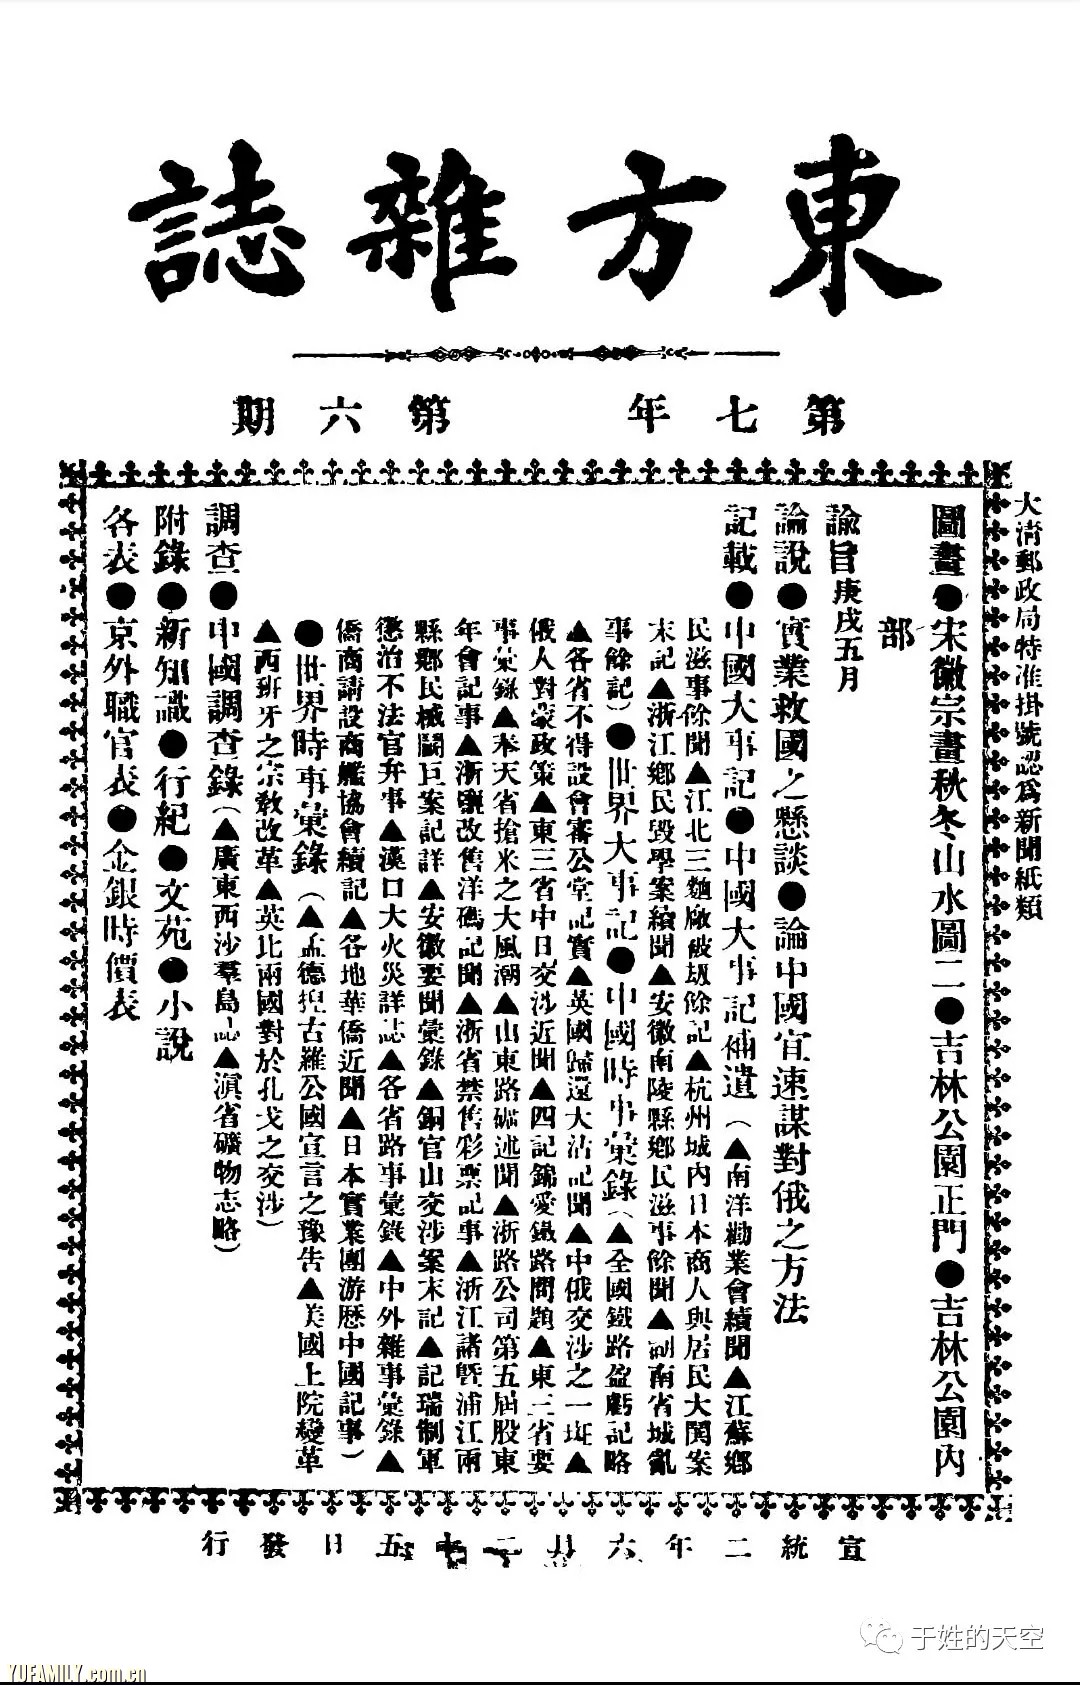 東方雜誌
第七年 第六期
大清郵政局特准掛號認爲新聞紙類
圖畫●宋徽宗畫秋冬山水圖二●吉林公園正門●吉林公園內
部
諭旨庚戌五月
論說●實業救國之懸談●論中國宜速謀對俄之方法
記載●中國大事記●中國大事記補遺(▲南洋勸業會續聞▲江蘇鄉
民滋事餘聞▲江北三麵廠被刼餘記▲杭州城內日本商人與居民大鬨案
末記▲浙江鄉民毀學案續聞▲安徽南陵縣鄉民滋事餘聞▲湖南省城亂
事餘記)●世界大事記●中國時事彙錄(▲全國鐵路盈虧記略
▲各省不得設會審公堂記實▲英國歸還大沽記聞▲中俄交涉之一斑▲
俄人對蒙政策▲東三省中日交涉近聞▲四記錦愛鐵路問題▲東三省要
事彙錄▲奉天省搶米之大風潮▲山東路礦述聞▲浙路公司第五屆股東
年會記事▲浙鹽改售洋碼記聞▲浙省禁售彩票記事▲浙江諸暨浦江兩
縣鄉民械鬭巨案記詳▲安徽要聞彙錄▲銅官山交涉案末記▲記瑞制軍
懲治不法官弁事▲漢口大火災詳誌▲各省路事彙錄▲中外雜事彙錄▲
僑商請設商艦協會續記▲各地華僑近聞▲日本實業團游歷中國記事)
●世界時事彙錄(▲孟德猊古羅公國宣言之豫告▲美國上院變革
▲西班牙之宗教改革▲英北兩國對於孔戈之交涉)
調查●中國調查錄(▲廣東西沙羣島誌▲滇省礦物志略)
附錄●新知識●行紀●文苑●小說
各表●京外職官表●金銀時價表
宣統二年六月二十五日發行
于姓的天空
YUFAMILY.com.cn